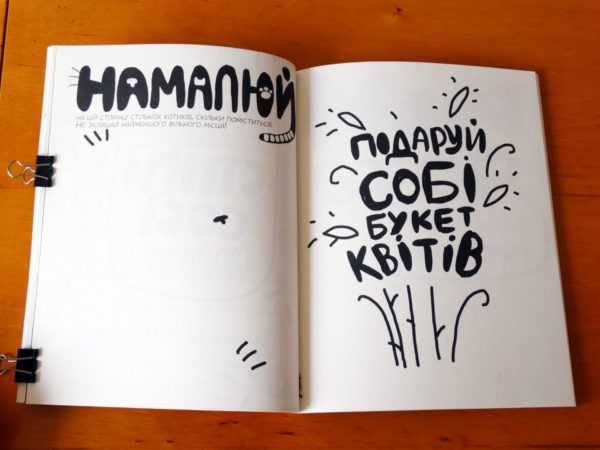 НАМАЛЮЙ
НА ЦІЙ СТОРІНЦІ СТІЛЬКИХ КОТИКІВ, СКІЛЬКИ ПОМІСТИТЬСЯ.
НЕ ЗАЛИШАЙ НАЙМЕНШОГО ВІЛЬНОГО МІСЦЯ!
ПОДАРУЙ
СОБІ
БУКЕТ
КВІТІВ